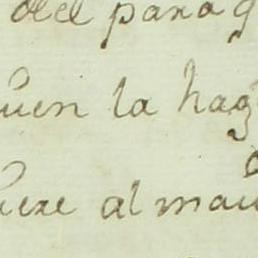 del para q
uien la hag
iere al mau